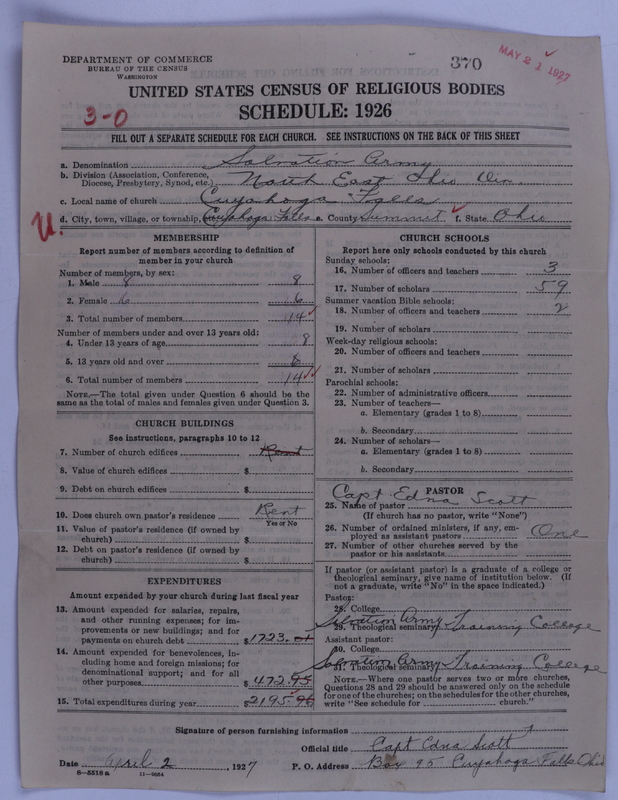 DEPARTMENT OF COMMERCE
BUREAU OF THE CENSUS
WASHINGTON
370
MAY 21 1927
UNITED STATES CENSUS OF RELIGIOUS BODIES
3-0
SCHEDULE: 1926
FILL OUT A SEPARATE SCHEDULE FOR EACH CHURCH. SEE INSTRUCTIONS ON THE BACK OF THIS SHEET
a. Denomination Salvation Army
b. Division (Association, Conference, Diocese, Presbytery, Synod, etc.) North East Ohio Div.
c. Local name of church Cuyahoga Falls
U.
d. City, town, village, or township, Cuyahoga Falls e. County Summit f. State Ohio
MEMBERSHIP
Report number of members according to definition of
member in your church
Number of members, by sex:
1. Male 8 8
2. Female 6 6
3. Total number of members 14
Number of members under and over 13 years old:
4. Under 13 years of age 8
5. 13 years old and over 6
6. Total number of members 14
NOTE.—The total given under Question 6 should be the
same as the total of males and females given under Question 3.
CHURCH BUILDINGS
See instructions, paragraphs 10 to 12
7. Number of church edifices Rent
8. Value of church edifices $
9. Debt on church edifices $
10. Does church own pastor's residence Rent
Yes or No
11. Value of pastor's residence (if owned by
church) $
12. Debt on pastor's residence (if owned by
church) $
EXPENDITURES
Amount expended by your church during last fiscal year
13. Amount expended for salaries, repairs,
and other running expenses; for im-
provements or new buildings; and for
payments on church debt $1723.01
14. Amount expended for benevolences, in-
cluding home and foreign missions; for
denominational support; and for all
other purposes $472.95
15. Total expenditures during year $2195.96
CHURCH SCHOOLS
Report here only schools conducted by this church
Sunday schools:
16. Number of officers and teachers 3
17. Number of scholars 59
Summer vacation Bible schools:
18. Number of officers and teachers 2
19. Number of scholars
Week-day religious schools:
20. Number of officers and teachers
21. Number of scholars
Parochial schools:
22. Number of administrative officers
23. Number of teachers—
a. Elementary (grades 1 to 8)
b. Secondary
24. Number of scholars—
a. Elementary (grades 1 to 8)
b. Secondary
PASTOR
25. Name of pastor Capt Edna Scott
(If church has no pastor, write "None")
26. Number of ordained ministers, if any, em-
ployed as assistant pastors One
27. Number of other churches served by the
pastor or his assistants
If pastor (or assistant pastor) is a graduate of a college or
theological seminary, give name of institution below. (If
not a graduate, write "No" in the space indicated.)
Pastor:
28. College
29. Theological seminary Salvation Army Training College
Assistant pastor:
30. College
31. Theological seminary Salvation Army Training College
NOTE.—Where one pastor serves two or more churches,
Questions 28 and 29 should be answered only on the schedule
for one of the churches; on the schedules for the other churches,
write "See schedule for church."
Signature of person furnishing information
Official title Capt Edna Scott
Date April 2, 1927
P. O. Address Box 95 Cuyahoga Falls Ohio
8—5518a 11—9054